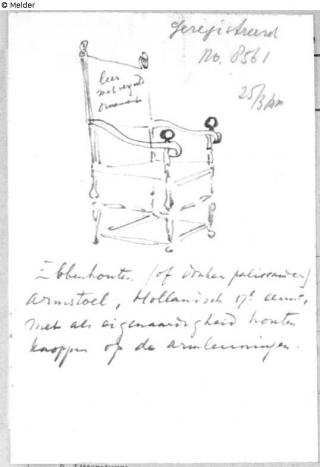 © Melder
Geregistreerd
No. 8561
25/3
leer
met verguld
ornament
Ebbenhouten (of donker palissander)
armstoel, Hollandsch 17e eeuw,
met als eigenaardigheid houten
knoppen op de armleuningen.